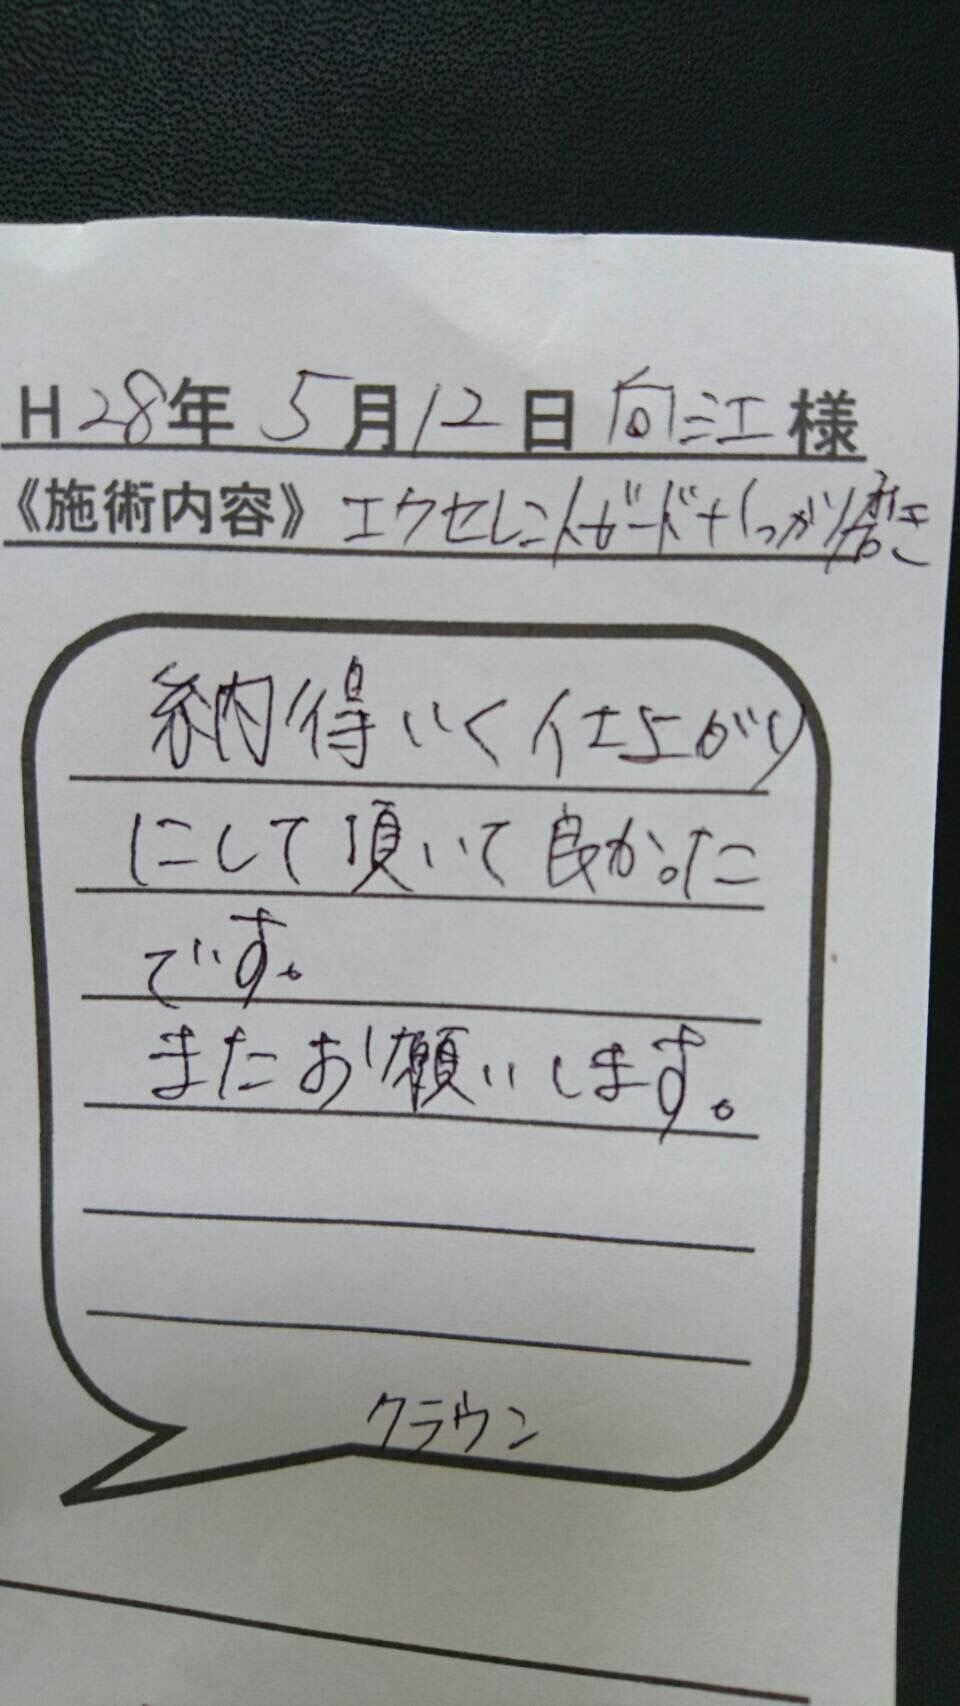 H28年 5月12日 向江 様
《施術内容》エクセレントガード+しっかり磨き
納得いく仕上がり
にして頂いて良かった
です。
またお願いします。
クラウン